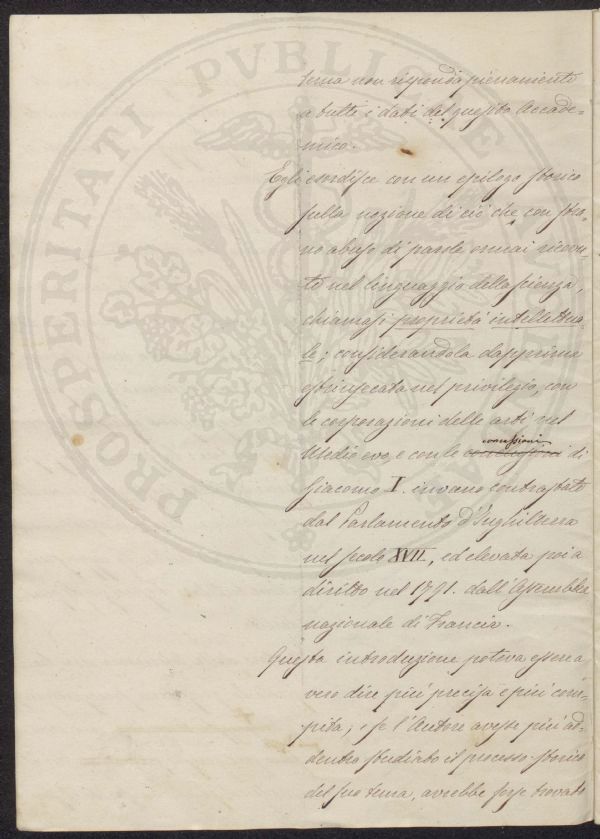 tema non risponda pienamente
a tutti i dati del quesito Accade-
mico.
Egli esordisce con un epilogo storico
sulla nozione di ciò che con stra-
no abuso di parole omai ricevu-
to nel linguaggio della scienza,
chiamasi proprietà intellettua-
le; considerandola dapprima
estrinsecata nel privilegio, con
le corporazioni delle arti nel
Medio evo, e con le concessioni di
Giacomo I. invano contrastate
dal Parlamento d'Inghilterra
nel secolo XVII, ed elevata poi a
diritto nel 1791. dall'Assemblea
nazionale di Francia.
Questa introduzione poteva essere a
vero dire più precisa e più com-
pita; e se l'Autore avesse più ad-
dentro studiato il processo storico
del suo tema, avrebbe forse trovato
PROSPERITATI PVBLICAE